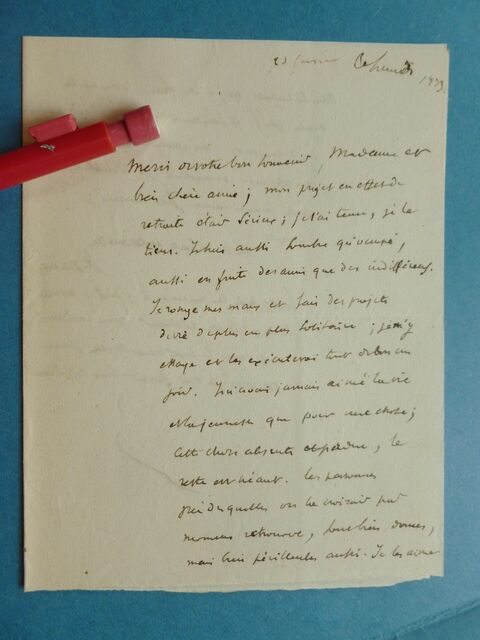 Ce lundi
1839.
Merci de votre bon souvenir, Madame et
bien chère amie ; mon projet en effet de
retraite était sérieux ; je l'ai tenu, je le
tiens. Je suis aussi sombre qu'occupé,
aussi en fuite des amis que des indifférens.
Je ronge mes maux et fais des projets
de vie de plus en plus solitaire ; je m'y
essaye et les exécuterai tout de bon un
jour. Je n'avais jamais aimé la vie
et la jeunesse que pour une chose ;
cette chose absente et perdue, le
reste est néant. Les personnes
près desquelles on la croirait par
momens retrouver, sont bien douces,
mais bien périlleuses aussi. Je les aime